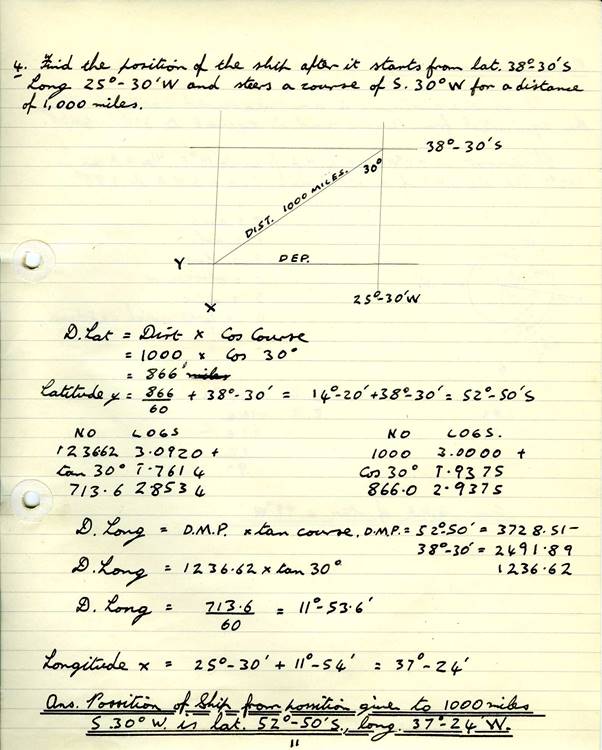 4. Find the position of the ship after it starts from lat. 38°-30'S
Long 25°-30'W and steers a course of S. 30° W for a distance
of 1,000 miles.
38°-30'S
30°
DIST. 1000 MILES.
Y
DEP.
X
25°-30'W
D.Lat = Dist × Cos Course
= 1000 × Cos 30°
= 866' miles
Latitude y = 866/60 + 38°-30' = 14°-20' + 38°-30' = 52°-50'S
NO LOGS
123662 3.0920 +
tan 30° 1̄.7614
713.6 2.8534
NO LOGS.
1000 3.0000 +
Cos 30° 1̄.9375
866.0 2.9375
D. Long = D.M.P. × tan course. D.M.P. = 52°-50' = 3728.51-
38°-30' = 2491.89
D. Long = 1236.62 × tan 30° 1236.62
D. Long = 713.6/60 = 11°-53.6'
Longitude x = 25°-30' + 11°-54' = 37°-24'
Ans. Possition of Ship from possition given to 1000 miles
S.30° W. is lat. 52°-50'S., long. 37°-24'W.